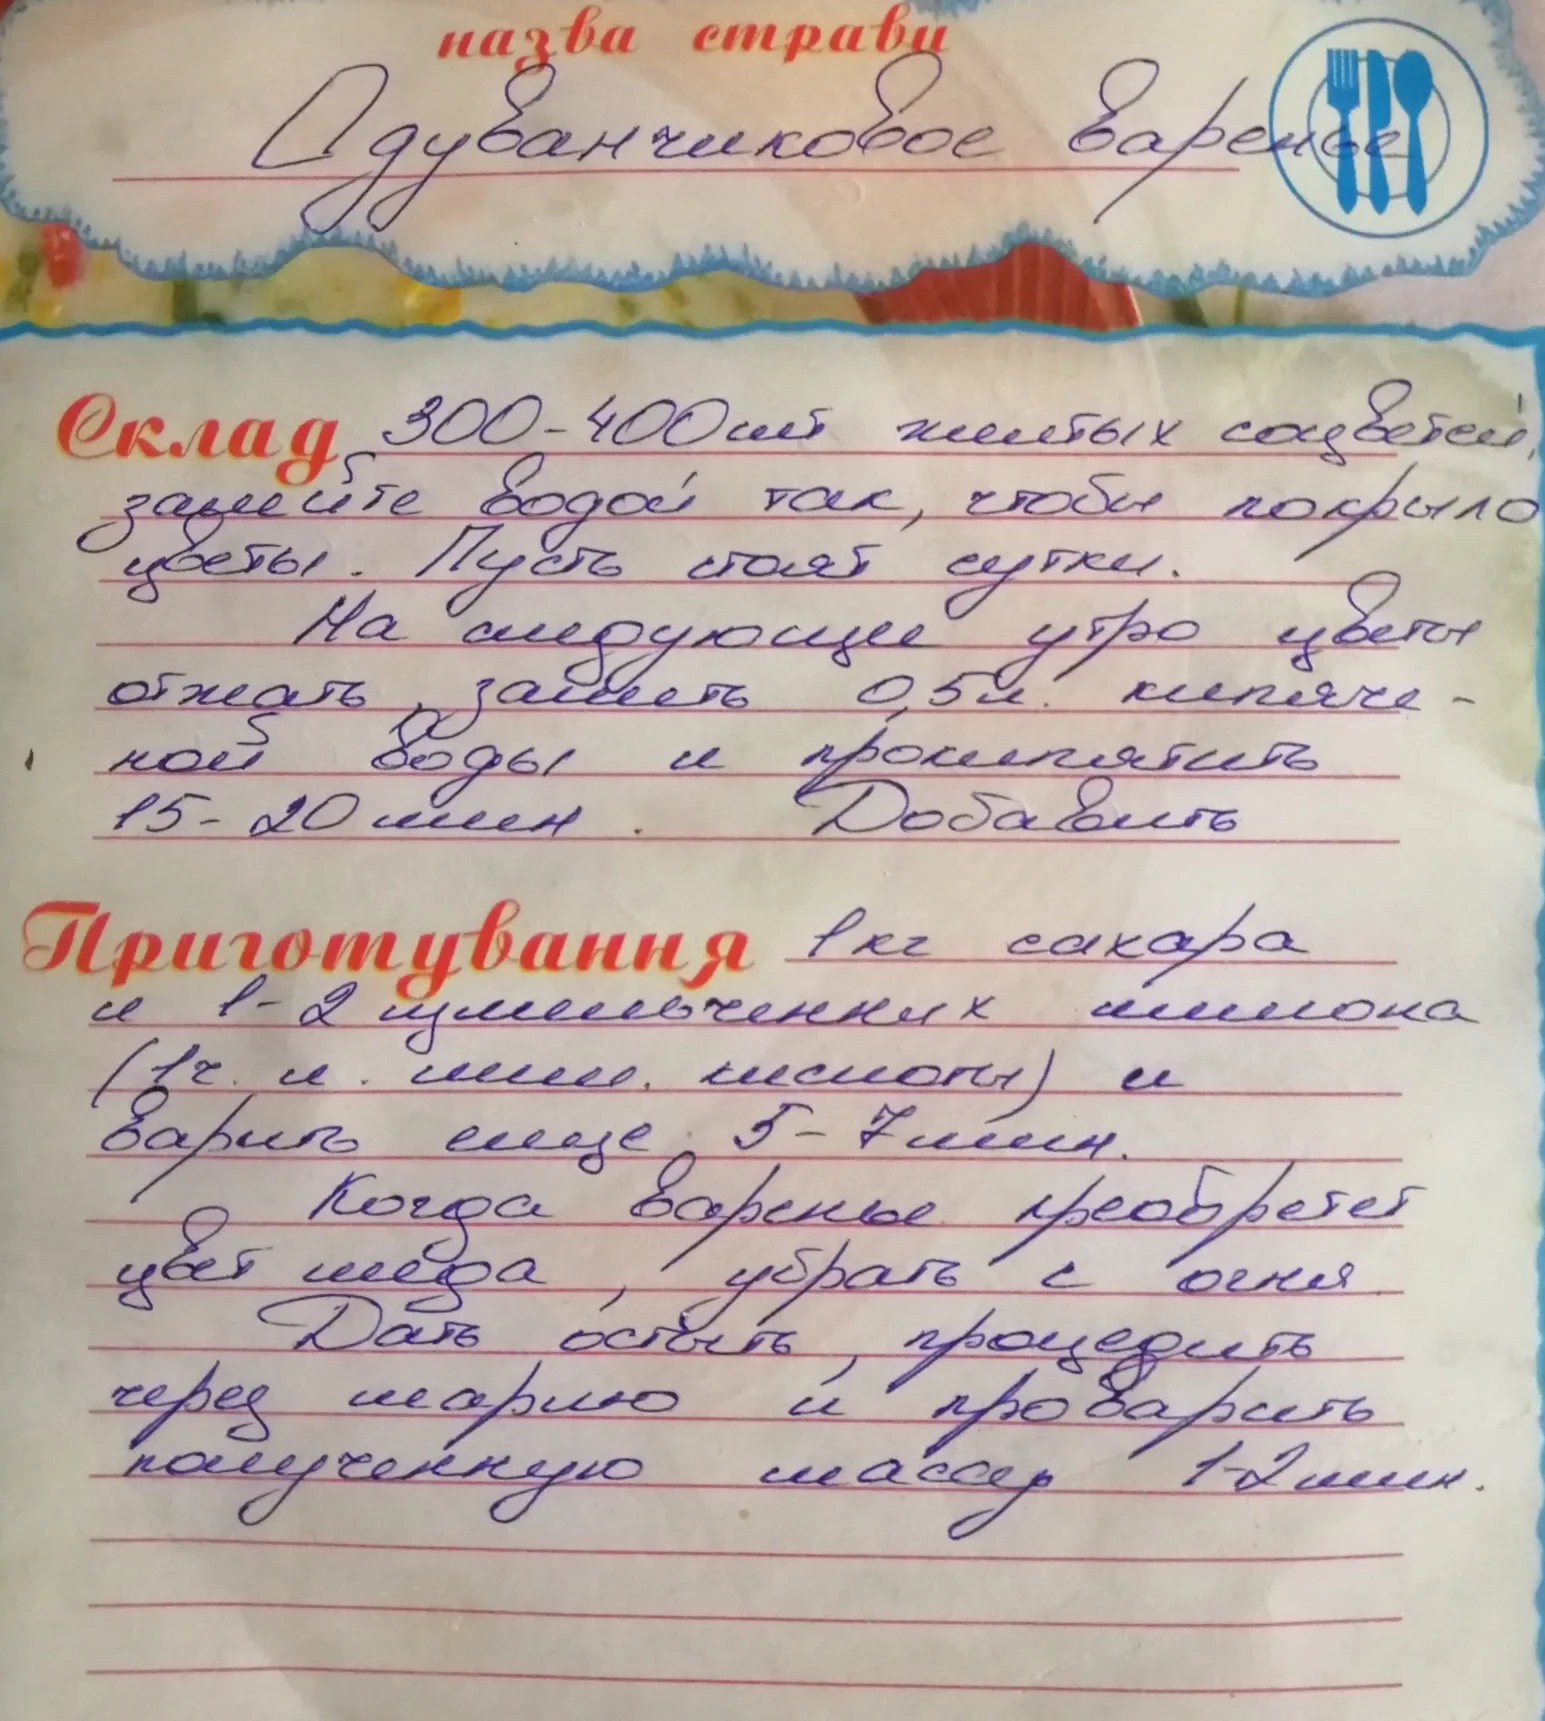 назва страви
Одуванчиковое варенье
Склад 300-400шт желтых соцветий,
залейте водой так, чтобы покрыло
цветы. Пусть стоят сутки.
На следующее утро цветы
отжать, залить 0,5л. кипяче-
ной воды и прокипятить
15-20 мин. Добавить
Приготування 1 кг сахара
и 1-2 измельченных лимона
(1ч. л. лим. кислоты) и
варить еще 5-7 мин.
Когда варенье преобретет
цвет меда, убрать с огня
Дать остыть, процедить
через марлю и проварить
полученную массу 1-2 мин.